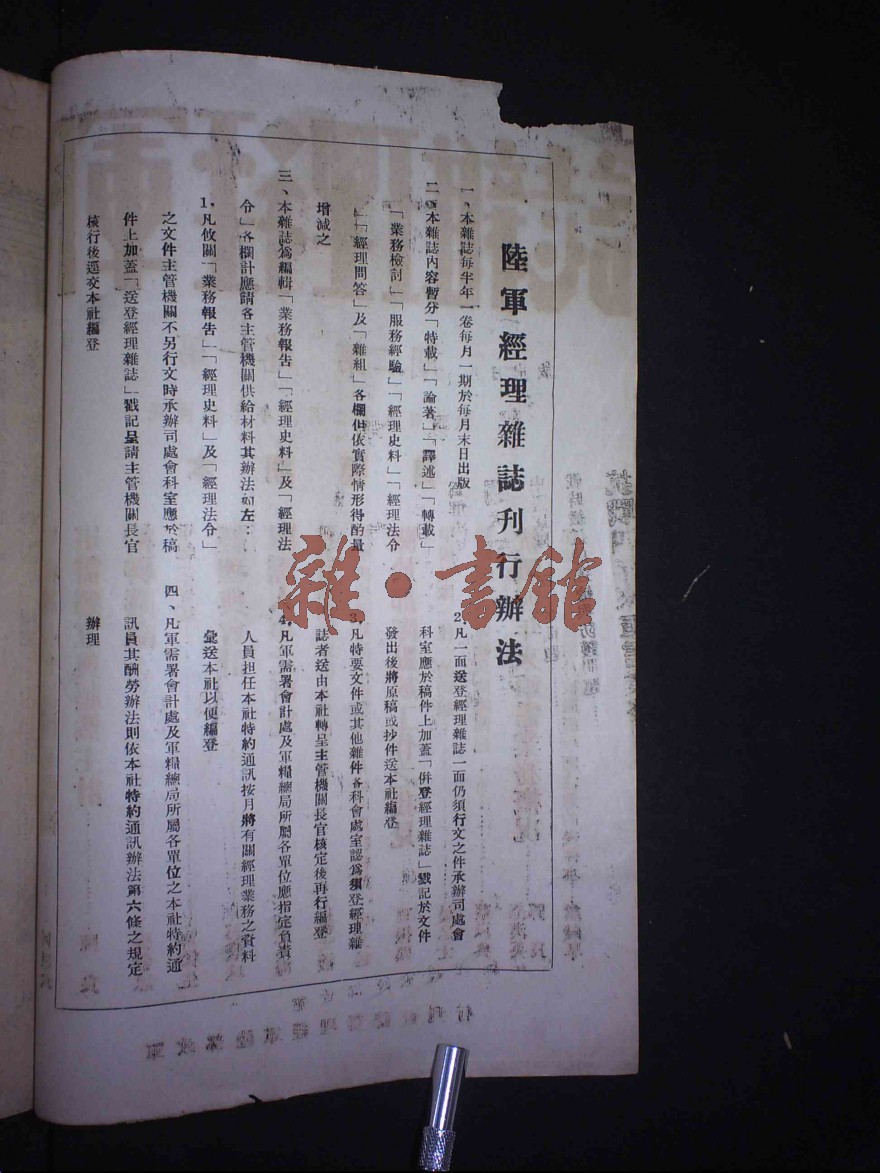 陸軍經理雜誌刊行辦法
一、本雜誌每半年一卷每月一期於每月末日出版
二、本雜誌內容暫分「特載」「論著」「譯述」「轉載」
「業務檢討」「服務經驗」「經理史料」「經理法令
」「經理問答」及「雜組」各欄但依實際情形得酌量
增減之
三、本雜誌為編輯「業務報告」「經理史料」及「經理法
令」各欄計應請各主管機關供給材料其辦法如左：
1，凡攸關「業務報告」「經理史料」及「經理法令」
之文件主管機關不另行文時承辦司處會科室應於稿
件上加蓋「送登經理雜誌」戳記呈請主管機關長官
核行後逕交本社編登
2，凡一面送登經理雜誌一面仍須行文之件承辦司處會
科室應於稿件上加蓋「併登經理雜誌」戳記於文件
發出後將原稿或抄件送本社編登
3，凡特要文件或其他雜件各科會處室認為須登經理雜
誌者送由本社轉呈主管機關長官核定後再行編登
4，凡軍需署會計處及軍糧總局所屬各單位應指定負責
人員担任本社特約通訊按月將有關經理業務之資料
彙送本社以便編登
四、凡軍需署會計處及軍糧總局所屬各單位之本社特約通
訊員其酬勞辦法則依本社特約通訊辦法第六條之規定
辦理
雜·書館